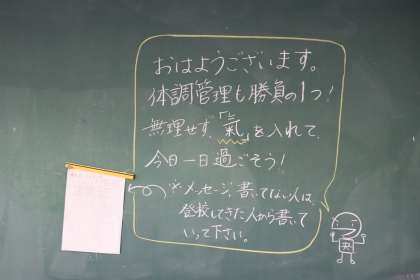 おはようございます。
体調管理も勝負の1つ！
無理せず、「氣」を入れて、
今日一日過ごそう！
※メッセージ、書いてない人は、
登校してきた人から書いて
いって下さい。